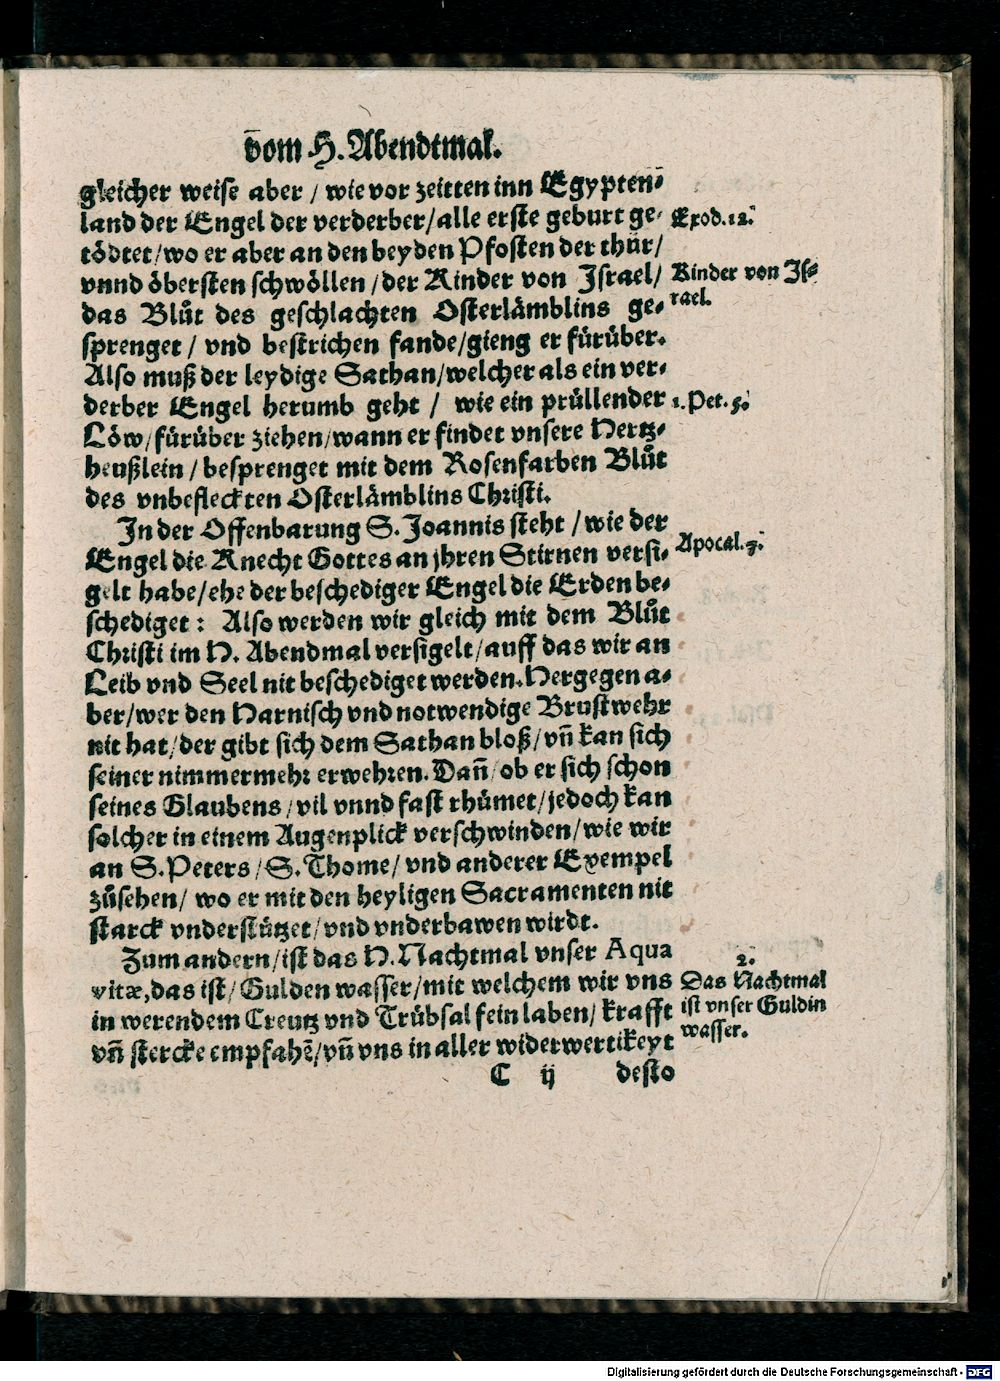 vom H. Abendtmal.
gleicher weise aber / wie vor zeitten inn Egypten⸗
land der Engel der verderber/alle erste geburt ge⸗
tödtet/wo er aber an den beyden Pfosten der thür/
vnnd öbersten schwöllen/der Kinder von Israel/
das Blůt des geschlachten Osterlämblins ge⸗
sprenget / vnd bestrichen fande/gieng er fürüber.
Also muß der leydige Sathan/welcher als ein ver⸗
derber Engel herumb geht / wie ein prüllender
Löw/fürüber ziehen/wann er findet vnsere Hertz⸗
heußlein/besprenget mit dem Rosenfarben Blůt
des vnbefleckten Osterlämblins Christi.
In der Offenbarung S. Joannis steht/wie der
Engel die Knecht Gottes an jhren Stirnen versi⸗
gelt habe/ehe der beschediger Engel die Erden be⸗
schediget: Also werden wir gleich mit dem Blůt
Christi im H. Abendmal versigelt/auff das wir an
Leib vnd Seel nit beschediget werden. Hergegen a⸗
ber/wer den Harnisch vnd notwendige Brustwehr
nit hat/der gibt sich dem Sathan bloß/vñ kan sich
seiner nimmermehr erwehren. Dañ/ob er sich schon
seines Glaubens/vil vnnd fast rhümet/jedoch kan
solcher in einem Augenplick verschwinden/wie wir
an S. Peters/S. Thome/vnd anderer Exempel
zůsehen/ wo er mit den heyligen Sacramenten nit
starck vnderstützet/vnd vnderbawen wirdt.
Zum andern/ist das H. Nachtmal vnser Aqua
vitæ,das ist/Gulden wasser/mit welchem wir vns
in werendem Creutz vnd Trübsal fein laben/krafft
vñ stercke empfahē/vñ vns in aller widerwertikeyt
C ij desto
Exod.12.
Kinder von Is⸗
rael.
1.Pet.5.
Apocal.7.
2.
Das Nachtmal
ist vnser Guldin
wasser.
Digitalisierung gefördert durch die Deutsche Forschungsgemeinschaft - DFG